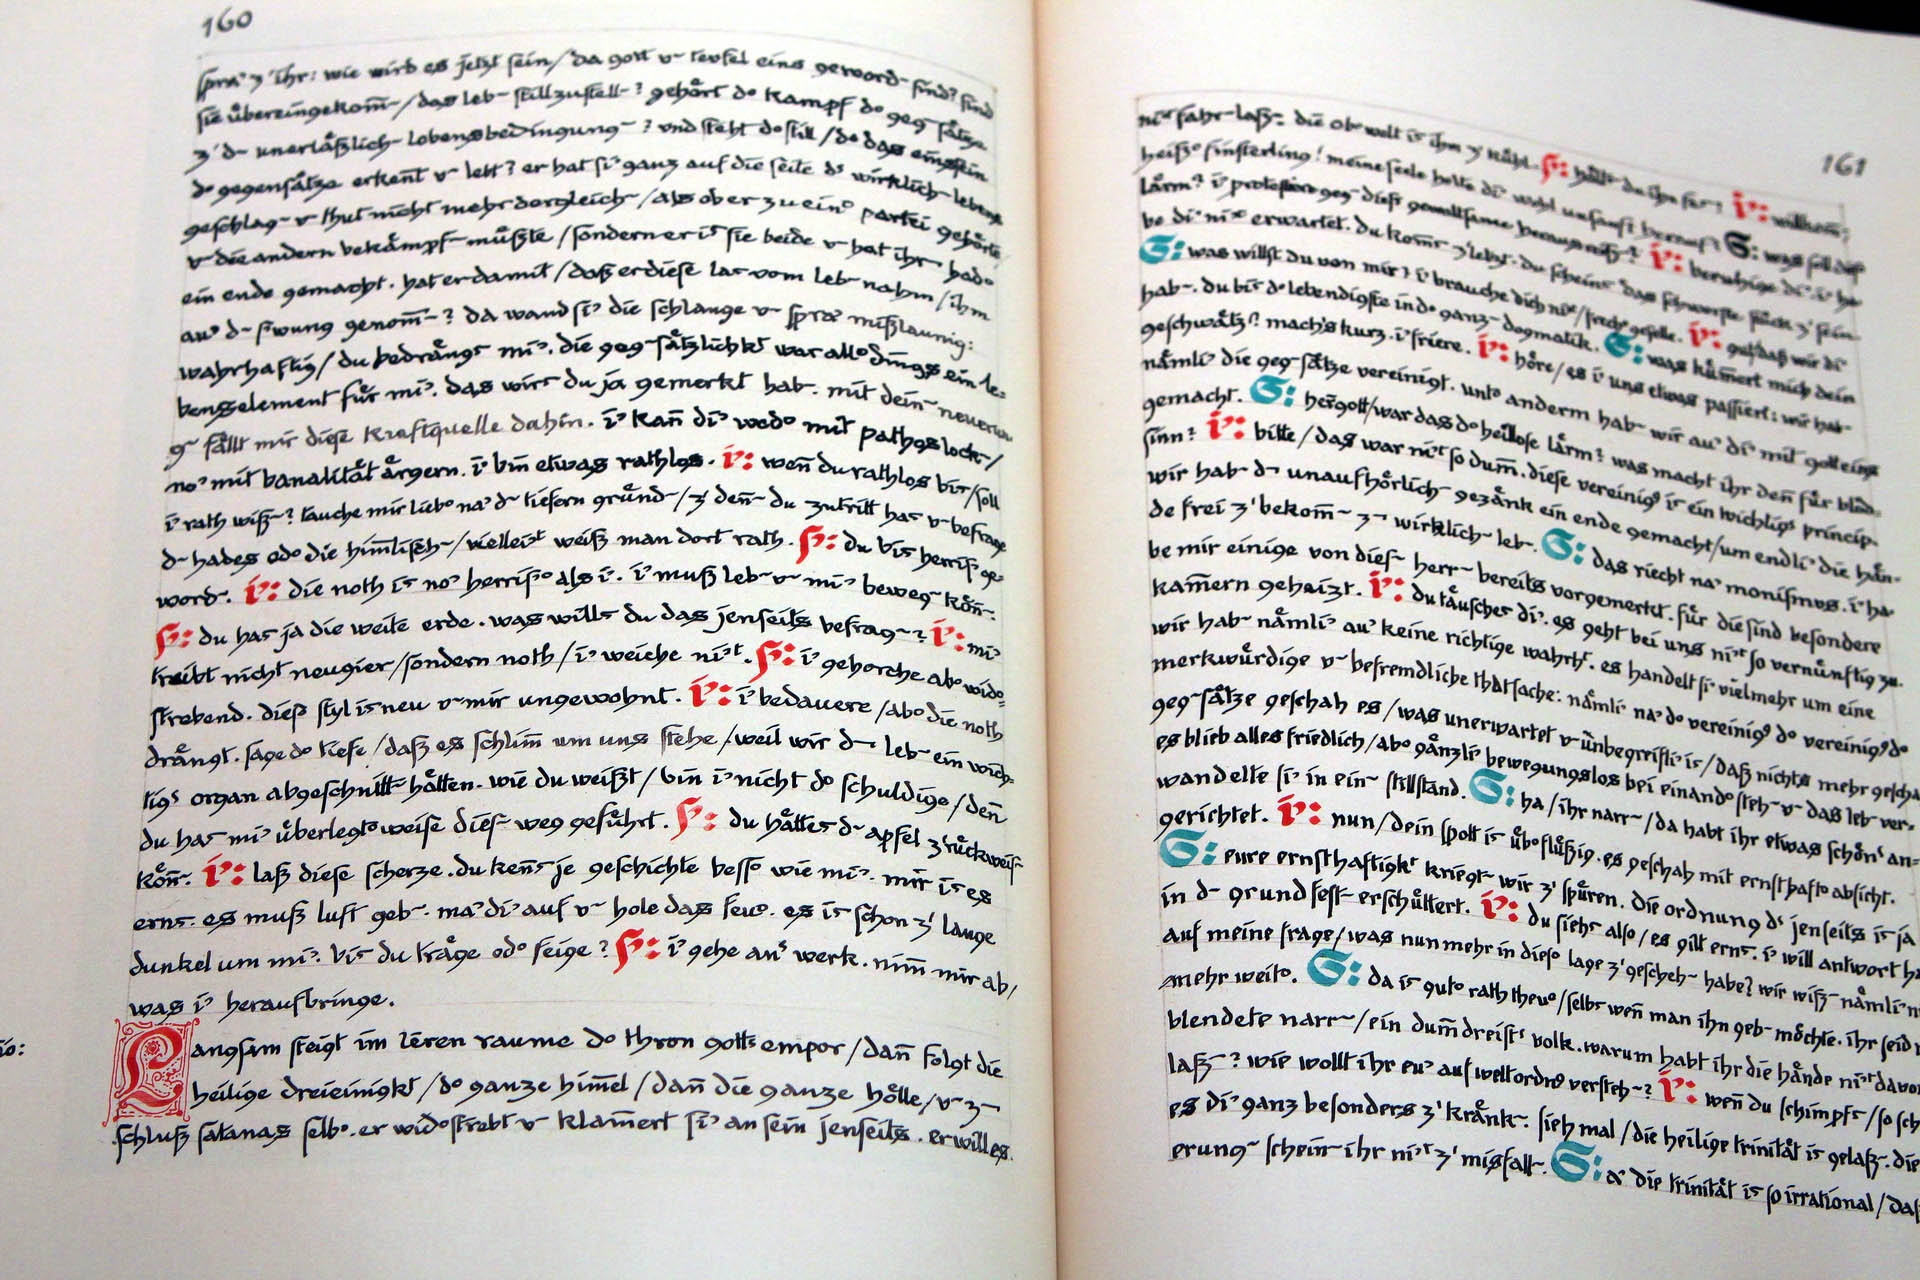 160
spra' z' ihr: wie wird es jetzt sein/da gott v- teufel eins geword- sind? sind
sie übereingekom̄-/das leb- stillzustell-? gehört do kampf do geg-sätze
z' d- unerläßlich- lebensbedingung-? und steht do still/do das einssein
do gegensätze erkent v- lebt? er hat si' ganz auf die seite ds wirklich- lebens
geschlag- v- thut nicht mehr dergleich-/als ob er zu eino partei gehörte
v- die andern bekämpf- müßte/sondern er is sie beide v- hat ihr- hado
ein ende gemacht. hat er damit/daß er diese last vom leb- nahm/ihm
au' d- swung genom̄-? da wand si' die schlange v- spra' mißlaunig:
wahrhaftig/du bedrängs mi'. die geg-sätzlichkt war allodings ein le-
benselement für mi'. das wirs du ja gemerkt hab-. mit dein- neuerun-
g- fällt mir diese kraftquelle dahin. i' kan̄ di' wedo mit pathos lock-/
no' mit banalität ärgern. i' bin etwas rathlos. i': wen̄ du rathlos bis/soll
i' rath wiß-? tauche mir liebo na' d- tiefern gründ-/z' den̄- du zutritt has v- befrage
d- hades odo die him̄lisch-/vielleit weiß man dort rath. S: du bis herris ge-
word-. i': die noth is no' herriso als i'. i' muß leb- v- mi' beweg- kön̄-.
S: du has ja die weite erde. was wills du das jenseits befrag-? i': mi'
treibt nicht neugier/sondern noth/i' weiche nit. S: i' gehorche abo wido-
strebend. dieso styl is neu v- mir ungewohnt. i': i' bedauere/abo die noth
drängt. sage do tiefe/daß es schlim̄ um uns stehe/weil wir d- leb- ein wich-
tigs organ abgeschnitt- hätten. wie du weißt/bin i' nicht do schuldige/den̄
du has mi' überlegto weise dies- weg geführt. S: du hättes d- apfel z'rückweis-
kön̄-. i': laß diese scherze. du kens je geschichte besso wie mi'. mir is es
erns. es muß luft geb-. ma' di' auf v- hole das feuo. es is schon z' lange
dunkel um mi'. bis du träge odo feige? S: i' gehe ans werk. nim̄ mir ab/
was i' heraufbringe.
Langsam steigt im leeren raume do thron gotts empor/dan̄ folgt die
heilige dreieinigkt/do ganze him̄el/dan̄ die ganze hölle/v- z-
schluß satanas selbo. er widostrebt v- klam̄ert si' an sein jenseits. er will es
161
nit fahr- laß-. die obowelt is ihm z' kühl. S: hälts du ihn fes? i': willkom̄/
heißo finsterling! meine seele holte di' wohl unsanft herauf? S: was soll dieso
lärm? i' protestire geg- dieses gewaltsame herausreiß-. i': beruhige di'. i' ha-
be di' nit erwartet. du koms z'letzt. du scheins das schwerste stück z' sein.
S: was willst du von mir? i' brauche dich nit/frecho geselle. i': gut/daß wir di'
hab-. du bis do lebendigste in do ganz- dogmatik. S: was küm̄ert mich dein
geschwätz? mach's kurz. i' friere. i': höre/es is uns etwas passiert: wir hab-
nämli' die geg-sätze vereinigt. unto anderm hab- wir au' di' mit gott eins
gemacht. S: hergott/war das do heillose lärm? was macht ihr den̄ für blöd-
sinn? i': bitte/das war nit so dum̄. diese vereinigg is ein wichtigs princip.
wir hab- d- unaufhörlich- gezänk ein ende gemacht/um endli' die hän-
de frei z' bekom̄- z- wirklich- leb-. S: das riecht na' monismus. i' ha-
be mir einige von dies- herr- bereits vorgemerkt. für die sind besondere
kam̄ern geheizt. i': du täusches di'. es geht bei uns nit so vernünftig zu.
wir hab- nämli' au' keine richtige wahrht. es handelt si' vielmehr um eine
merkwürdige v- befremdliche thatsache: nämli' na' do vereinigg do
geg-sätze geschah es/was unerwartet v- unbegreifli' is/daß nichts mehr gescha
es blieb alles friedlich/abo gänzli' bewegungslos bei einando steh- v- das leb- ver-
wandelte si' in ein- stillstand. S: ha/ihr narr-/da habt ihr etwas schöns an-
gerichtet. i': nun/dein spott is üboflüßig. es geschah mit ernsthafto absicht.
S: eure ernsthaftigkt kriegt- wir z' spüren. die ordnung ds jenseits is ja
in d- grundfest- erschüttert. i': du siehs also/es gilt erns. i' will antwort ha
auf meine frage/was nunmehr in dieso lage z'gescheh- habe? wir wiß- nämli'
mehr weito. S: da is guto rath theuo/selbs wen̄ man ihn geb- möchte. ihr seid
blendete narr-/ein dum̄dreists volk. warum habt ihr die hände nit davo
laß-? wie wollt ihr eu' auf weltordng versteh-? i': wen̄ du schimpfs/so sch
es di' ganz besonders z' kränk-. sieh mal/die heilige trinität is gelaß-. die
erung- schein- ihr nit z' misfall-. S: a' die trinität is so irrational/das